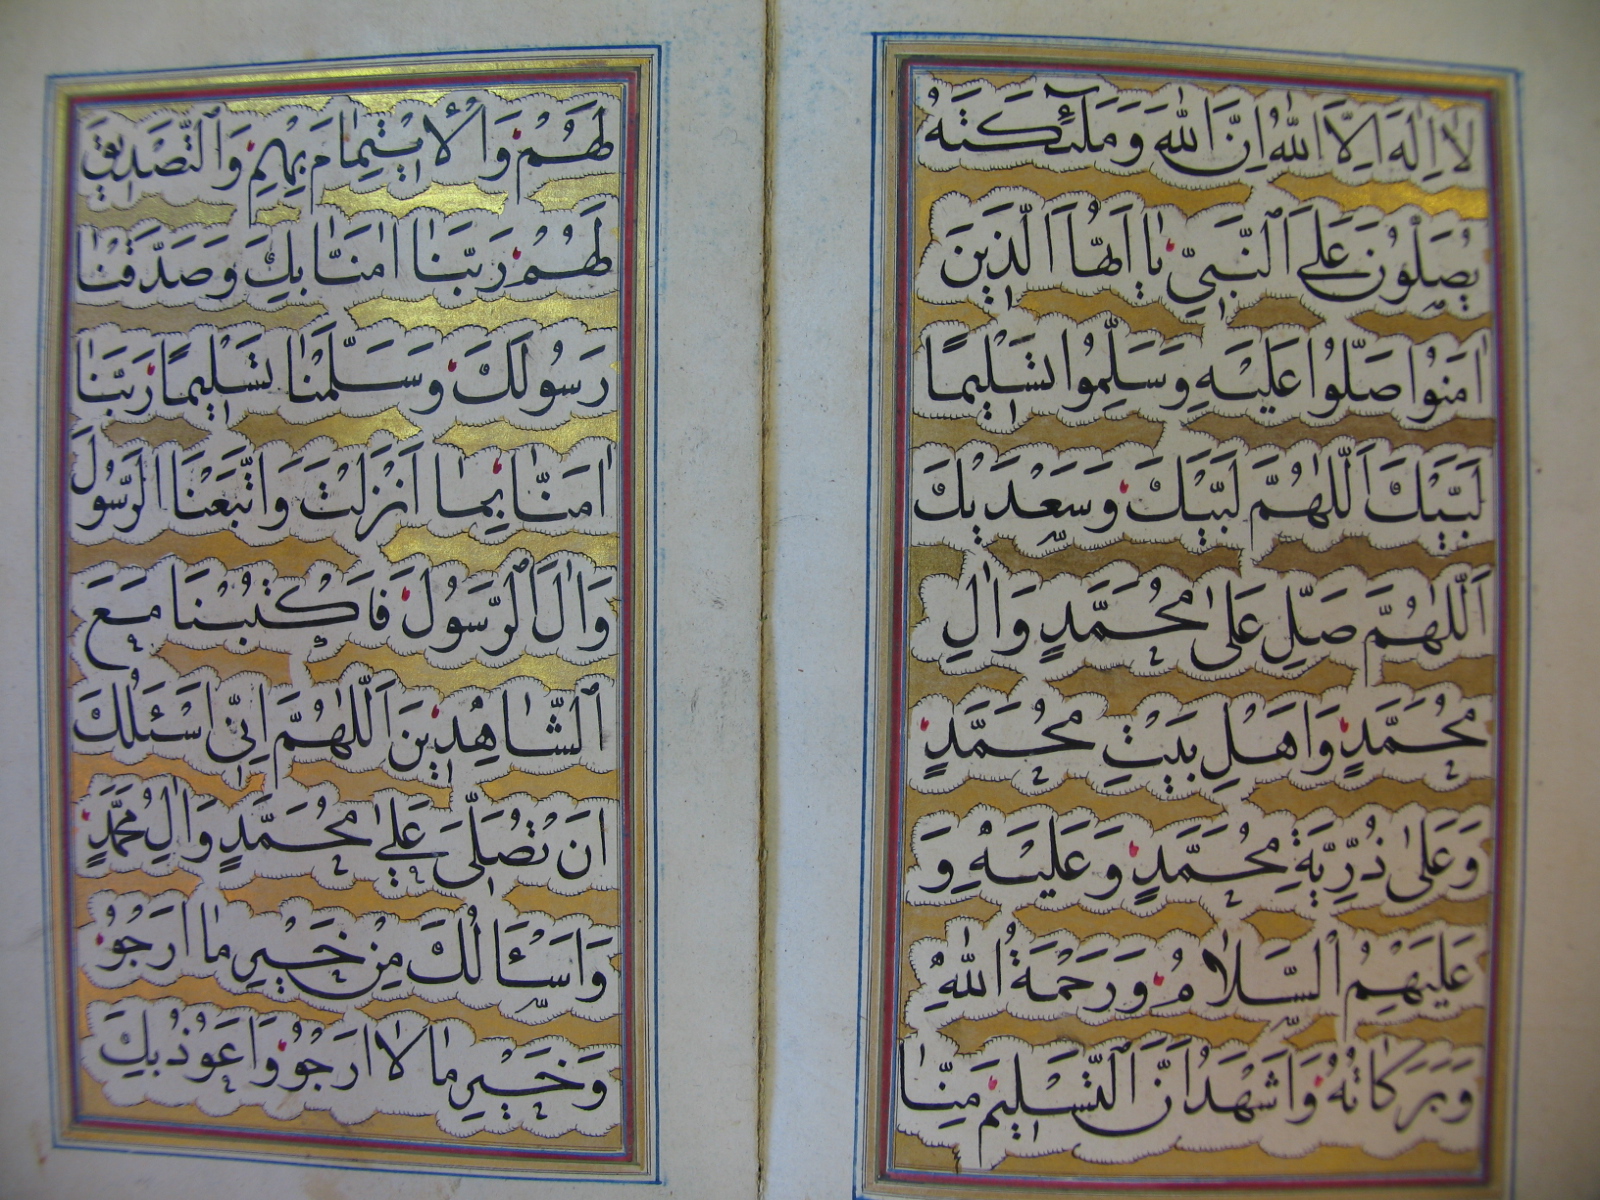 لَا اِلٰهَ اِلَّا اللّٰهُ اِنَّ اللّٰهَ وَمَلٰٓئِكَتَهُ
يُصَلُّونَ عَلَى النَّبِيِّ يٰا اَيُّهَا الَّذِينَ
اٰمَنُوا صَلُّوا عَلَيْهِ وَسَلِّمُوا تَسْلِيمًا
لَبَّيْكَ اَللّٰهُمَّ لَبَّيْكَ وَسَعْدَيْكَ
اَللّٰهُمَّ صَلِّ عَلٰى مُحَمَّدٍ وَاٰلِ
مُحَمَّدٍ وَاَهْلِ بَيْتِ مُحَمَّدٍ
وَعَلٰى ذُرِّيَّةِ مُحَمَّدٍ وَعَلَيْهِ وَ
عَلَيْهِمُ السَّلَامُ وَرَحْمَةُ اللّٰهِ
وَبَرَكَاتُهُ وَاَشْهَدُ اَنَّ التَّسْلِيمَ مِنّٰا
لَهُمْ وَالْاِيْتِمٰامَ بِهِمْ وَالتَّصْدِيقَ
لَهُمْ رَبَّنٰا اٰمَنّٰا بِكَ وَصَدَّقْنٰا
رَسُولَكَ وَسَلَّمْنٰا تَسْلِيمًا رَبَّنٰا
اٰمَنّٰا بِمٰا اَنْزَلْتَ وَاتَّبَعْنَا الرَّسُولَ
وَاٰلَ الرَّسُولِ فَاكْتُبْنَا مَعَ
الشّٰاهِدِينَ اَللّٰهُمَّ اِنِّي اَسْئَلُكَ
اَنْ تُصَلِّىَ عَلٰى مُحَمَّدٍ وَاٰلِ مُحَمَّدٍ
وَاَسْئَالُكَ مِنْ خَيْرِ مٰا اَرْجُوُ
وَخَيْرِ مٰا لٰا اَرْجُوُ وَاَعُوذُ بِكَ